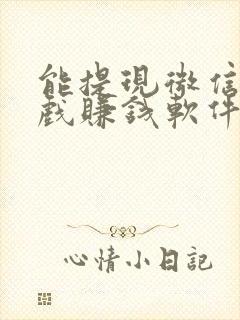 能提現微信
戲賺錢軟件
心情小日記